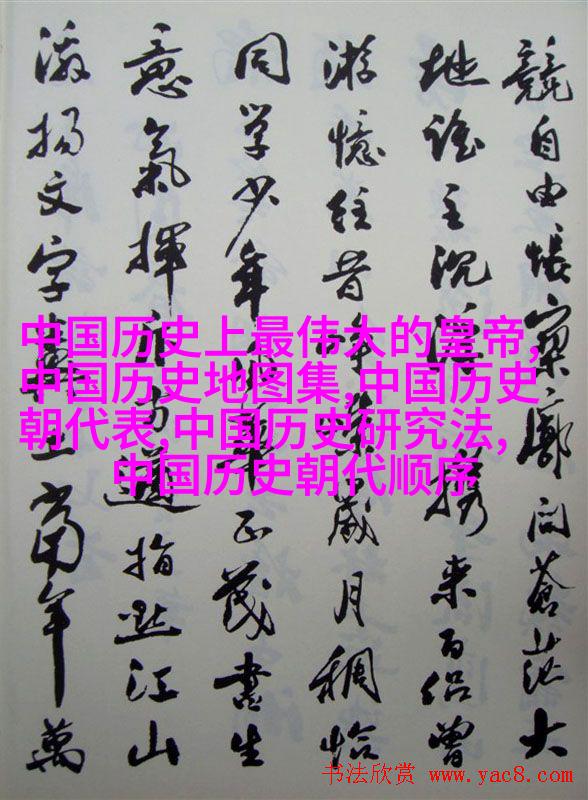 競自由悵寥廓问蒼茫大
地谁主沉浮携来百侣曾
游憶往昔峥嵘歲月稠恰
同学少年风華正茂書生
意氣揮斥方遒指點江山
激揚文字糞土當年萬
中国历史上最伟大的皇帝,
中国历史地图集,中国历史
朝代表,中国历史研究法,
中国历史朝代顺序
书法欣赏 www.yac8.com